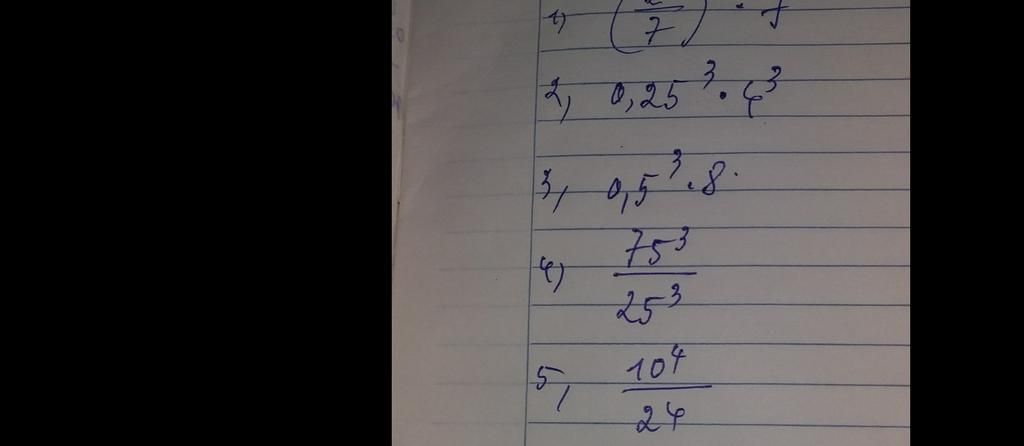 1) (/7) · 7
2, 0,25³ · 4³
3, 0,5³ · 8
4) 75³
25³
5, 10⁴
24